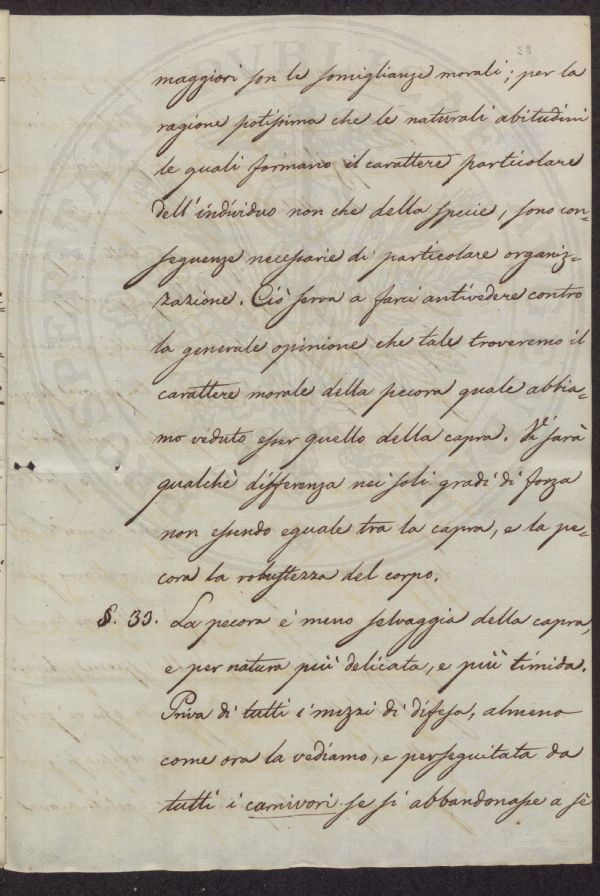 28
maggiori son le somiglianze morali; per la
ragione potissima che le naturali abitudini
le quali formano il carattere particolare
dell'individuo non che della specie, sono con=
seguenze necessarie di particolare organiz=
zazione. Ciò serva a farci antivedere contro
la generale opinione che tale troveremo il
carattere morale della pecora quale abbia=
mo veduto esser quello della capra. Vi sarà
qualchè differenza nei soli gradi di forza
non essendo eguale tra la capra, e la pe=
cora la robustezza del corpo.
§. 33. La pecora è meno selvaggia della capra,
e per natura più delicata, e più timida.
Priva di tutti i mezzi di difesa, almeno
come ora la vediamo, e perseguitata da
tutti i carnivori se si abbandonasse a sè